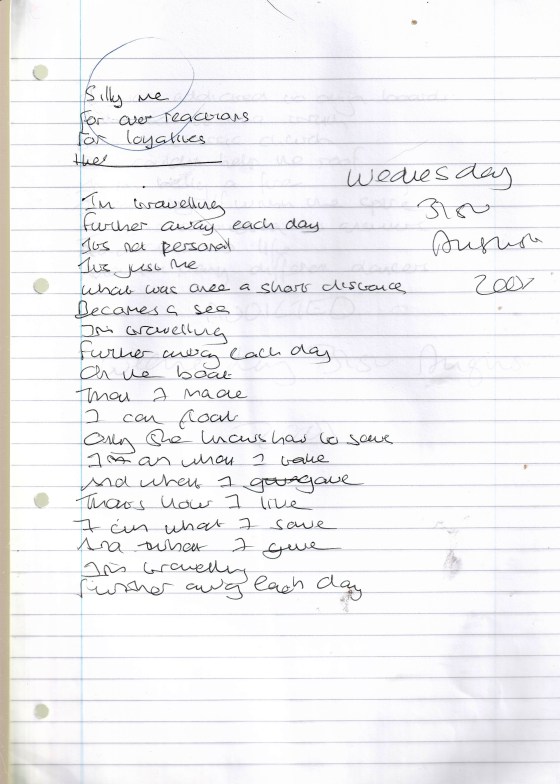 Silly me
For over reactions
For loyalties
Wednesday
31st
August
I'm travelling
Further away each day
It's not personal
It's just me
What was once a short distance
Becomes a sea
I'm travelling
Further away each day
On the boat
That I made
I can float
Only she knows how to save
I am what I take
And what I gave
That's how I live
I am what I save
And what I give
I'm travelling
Further away each day